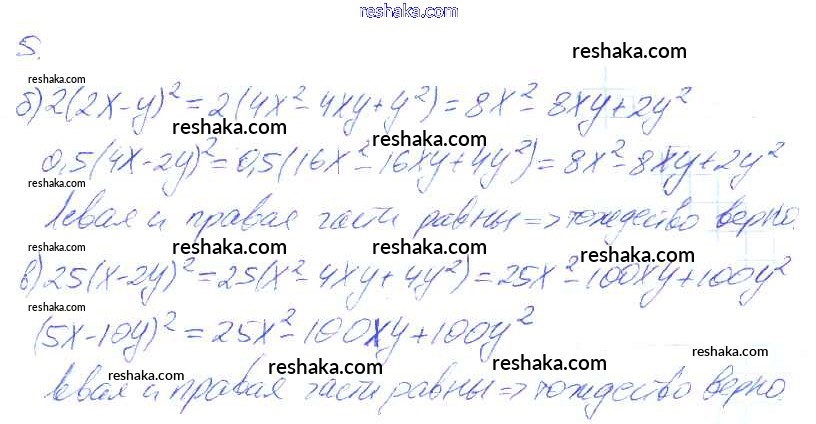 reshaka.com
5.
reshaka.com
reshaka.com
б) 2(2x-y)² = 2(4x²-4xy+y²) = 8x²-8xy+2y²
reshaka.com
reshaka.com
0,5(4x-2y)² = 0,5(16x²-16xy+4y²) = 8x²-8xy+2y²
reshaka.com
reshaka.com
левая и правая части равны => тождество верно.
reshaka.com
reshaka.com
reshaka.com
в) 25(x-2y)² = 25(x²-4xy+4y²) = 25x²-100xy+100y²
reshaka.com
(5x-10y)² = 25x²-100xy+100y²
reshaka.com
reshaka.com
reshaka.com
reshaka.com
левая и правая части равны => тождество верно.